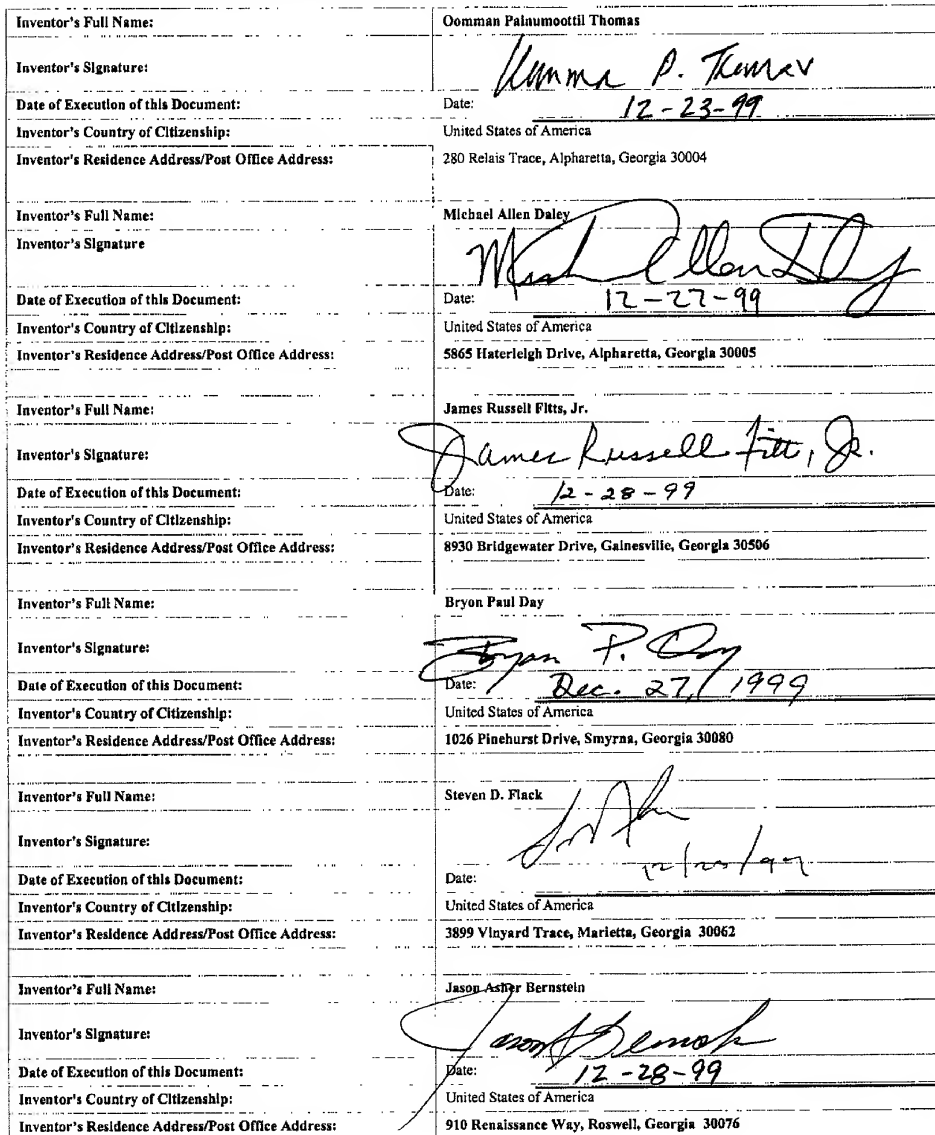 Inventor's Full Name: Oomman Painumoottil Thomas
Inventor's Signature: P. Thomas
Date of Execution of this Document: Date: 12-23-99
Inventor's Country of Citizenship: United States of America
Inventor's Residence Address/Post Office Address: 280 Relais Trace, Alpharetta, Georgia 30004
Inventor's Full Name: Michael Allen Daley
Inventor's Signature Allen
Date of Execution of this Document: Date: 12-27-99
Inventor's Country of Citizenship: United States of America
Inventor's Residence Address/Post Office Address: 5865 Haterleigh Drive, Alpharetta, Georgia 30005
Inventor's Full Name: James Russell Fitts, Jr.
Inventor's Signature: James Russell Fitts, Jr.
Date of Execution of this Document: Date: 12-28-99
Inventor's Country of Citizenship: United States of America
Inventor's Residence Address/Post Office Address: 8930 Bridgewater Drive, Gainesville, Georgia 30506
Inventor's Full Name: Bryon Paul Day
Inventor's Signature: Bryon P. Day
Date of Execution of this Document: Date: Dec. 27, 1999
Inventor's Country of Citizenship: United States of America
Inventor's Residence Address/Post Office Address: 1026 Pinehurst Drive, Smyrna, Georgia 30080
Inventor's Full Name: Steven D. Flack
Inventor's Signature:
Date of Execution of this Document: Date:
Inventor's Country of Citizenship: United States of America
Inventor's Residence Address/Post Office Address: 3899 Vinyard Trace, Marietta, Georgia 30062
Inventor's Full Name: Jason Asher Bernstein
Inventor's Signature: Jason
Date of Execution of this Document: Date: 12-28-99
Inventor's Country of Citizenship: United States of America
Inventor's Residence Address/Post Office Address: 910 Renaissance Way, Roswell, Georgia 30076